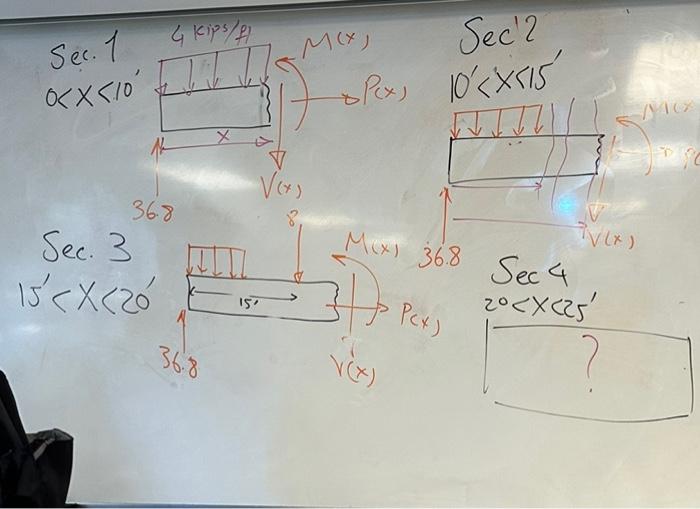 Sec. 1
4 kips/ft
0<x<10'
M(x)
P(x)
x
V(x)
36.8
Sec 2
10'<x<15'
M(x
V(x)
36.8
Sec. 3
15'<x<20'
8
15'
M(x)
P(x)
V(x)
36.8
Sec 4
20<x<25'
?